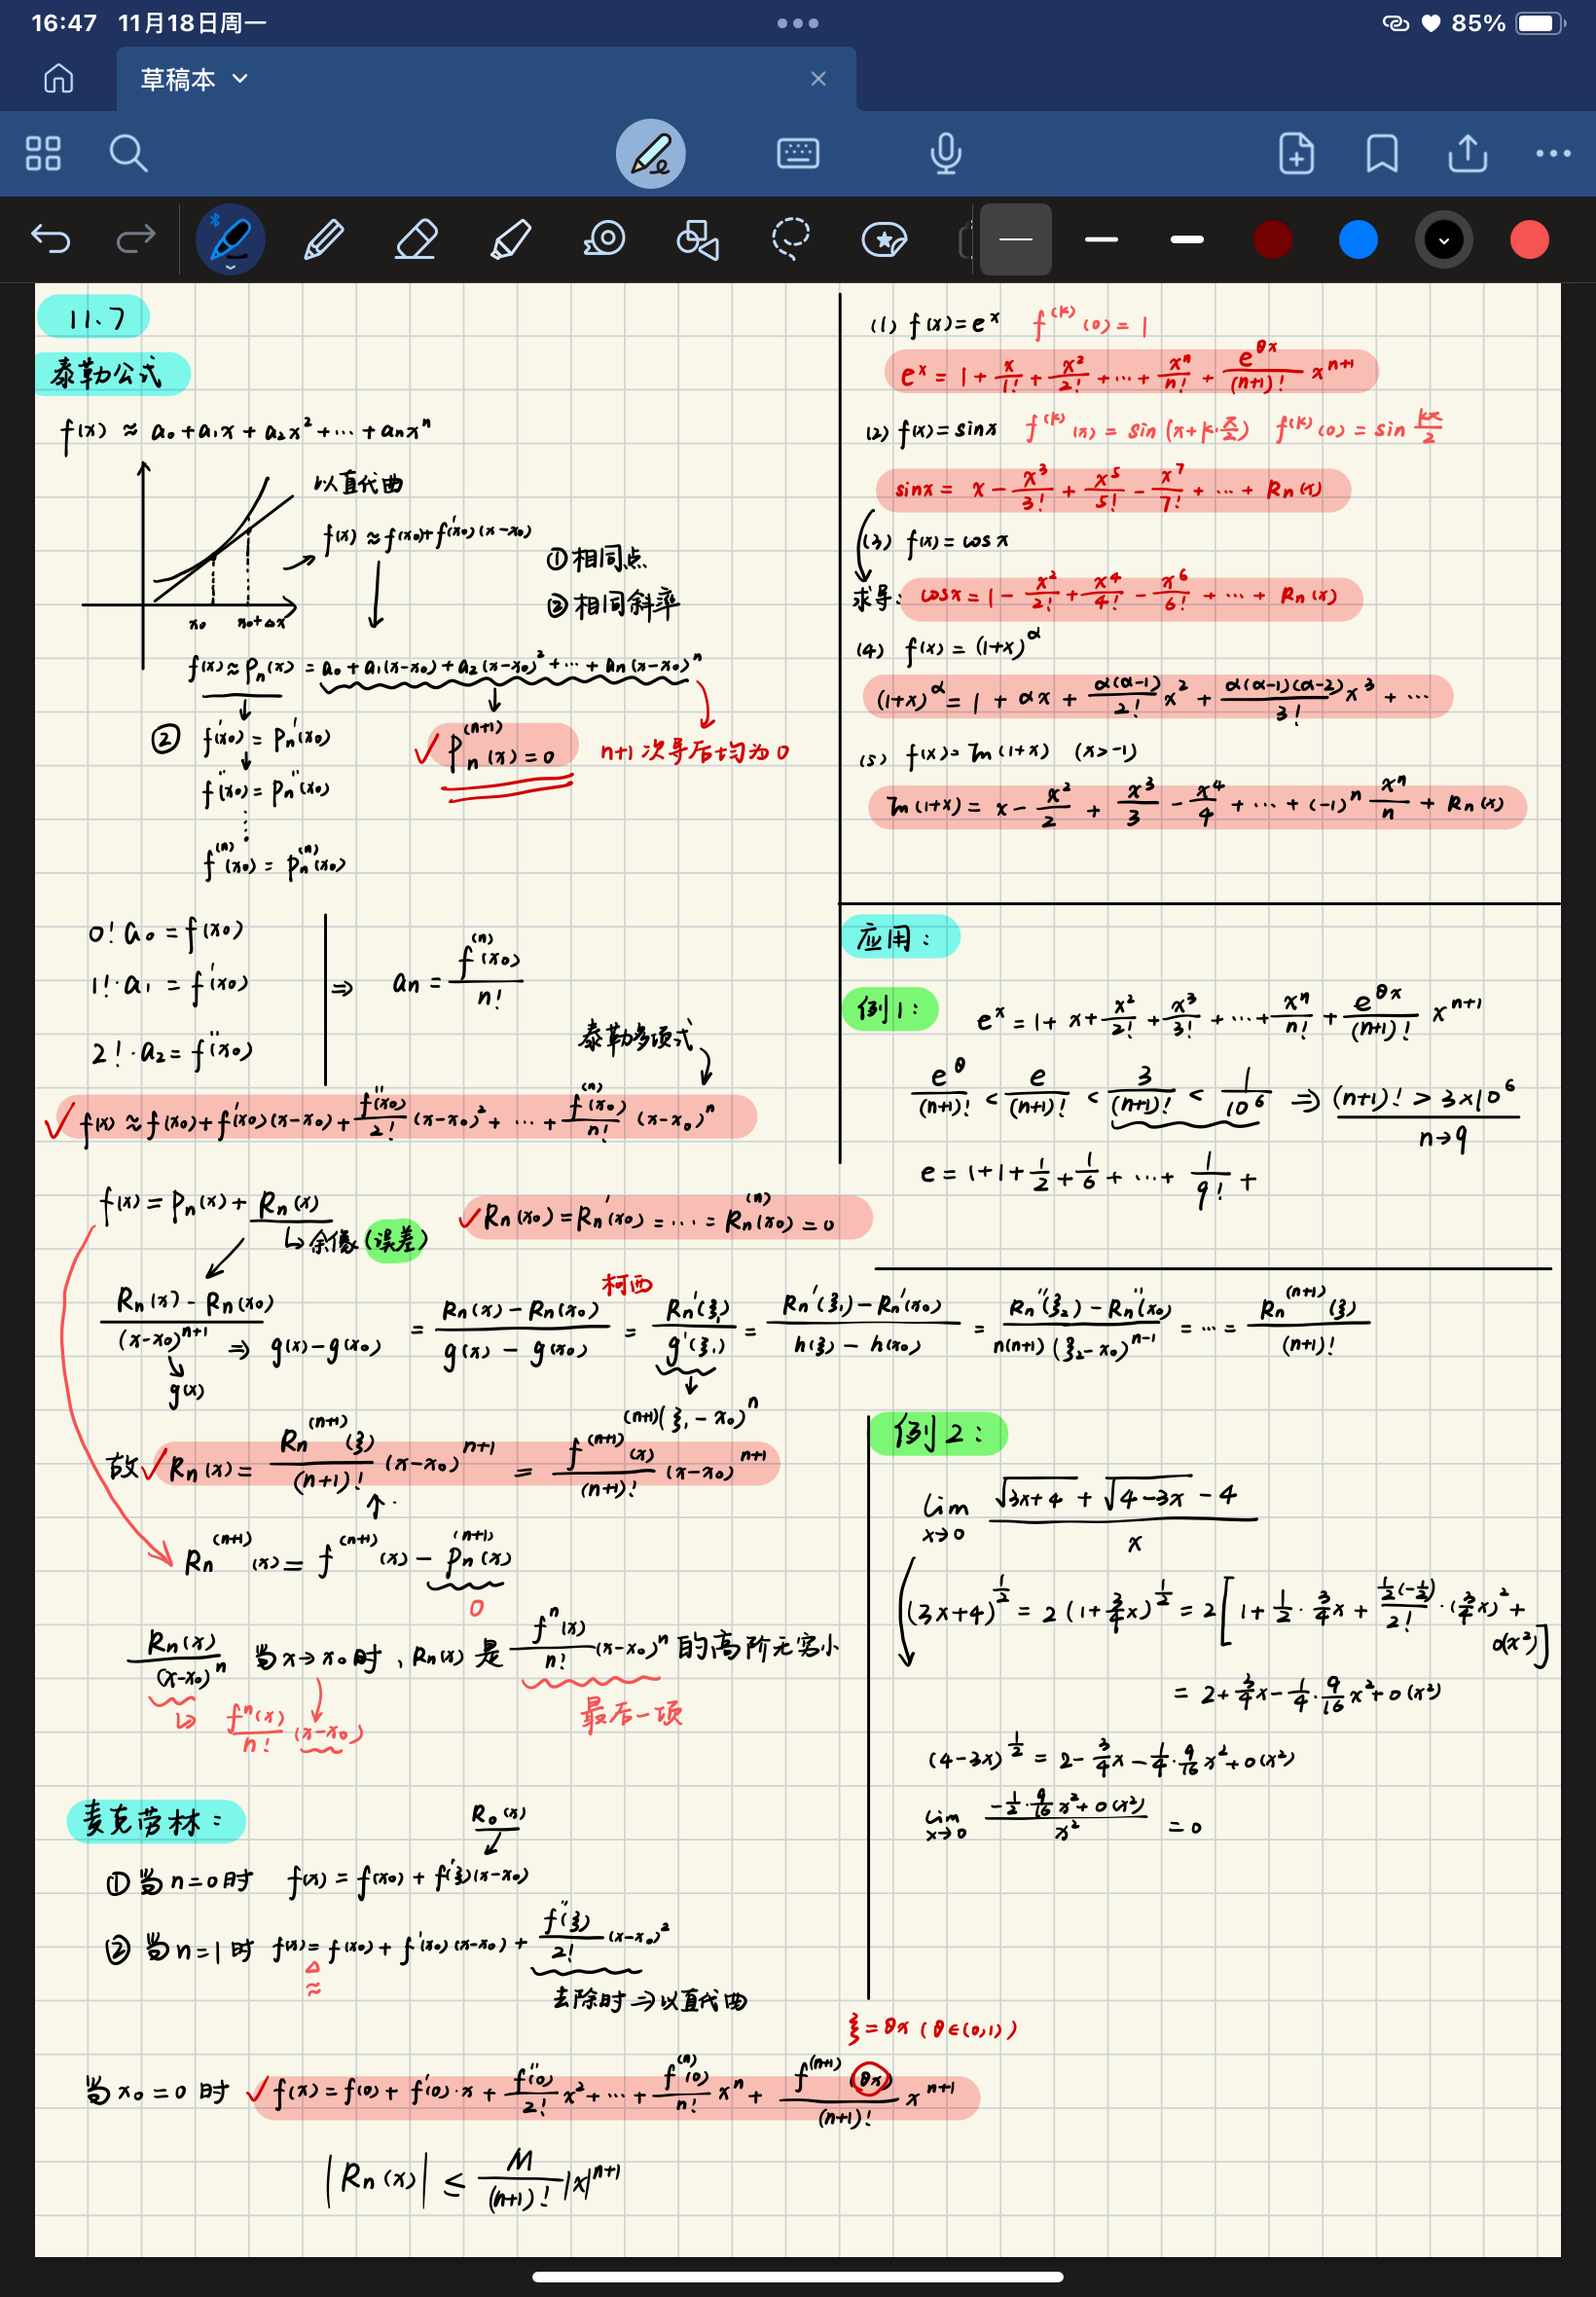 16:47 11月18日周一
85%
草稿本
11.7
泰勒公式
f(x) ≈ a₀+a₁x+a₂x²+⋯+aₙxⁿ
以直代曲
f(x) ≈ f(x₀)+f'(x₀)(x-x₀)
① 相同点
② 相同斜率
x₀ x₀+Δx
f(x)≈Pₙ(x) = a₀+a₁(x-x₀)+a₂(x-x₀)²+⋯+aₙ(x-x₀)ⁿ
② f'(x₀) = Pₙ'(x₀)
✓ Pₙ⁽ⁿ⁺¹⁾(x) = 0 n+1 次导后均为 0
f''(x₀) = Pₙ''(x₀)
⋮
f⁽ⁿ⁾(x₀) = Pₙ⁽ⁿ⁾(x₀)
0! a₀ = f(x₀)
1!·a₁ = f'(x₀) ⇒ aₙ = f⁽ⁿ⁾(x₀)/n!
2!·a₂ = f''(x₀)
泰勒多项式
✓ f(x) ≈ f(x₀)+f'(x₀)(x-x₀)+f''(x₀)/2! (x-x₀)²+ ⋯ + f⁽ⁿ⁾(x₀)/n! (x-x₀)ⁿ
f(x) = Pₙ(x)+Rₙ(x)
↳ 余像 (误差)
✓ Rₙ(x₀) = Rₙ'(x₀) = ⋯ = Rₙ⁽ⁿ⁾(x₀) = 0
柯西
Rₙ(x)-Rₙ(x₀)/(x-x₀)ⁿ⁺¹ ⇒ g(x)-g(x₀) = Rₙ(x)-Rₙ(x₀)/g(x)-g(x₀) = Rₙ'(ξ₁)/g'(ξ₁) = Rₙ'(ξ₁)-Rₙ'(x₀)/h(ξ)-h(x₀) = Rₙ''(ξ₂)-Rₙ''(x₀)/n(n+1)(ξ₂-x₀)ⁿ⁻¹ = ⋯ = Rₙ⁽ⁿ⁺¹⁾(ξ)/(n+1)!
g(x)
(n+1)(ξ₁-x₀)ⁿ
故 ✓ Rₙ(x) = Rₙ⁽ⁿ⁺¹⁾(ξ)/(n+1)! (x-x₀)ⁿ⁺¹ = f⁽ⁿ⁺¹⁾(x)/(n+1)! (x-x₀)ⁿ⁺¹
Rₙ⁽ⁿ⁺¹⁾(x) = f⁽ⁿ⁺¹⁾(x) - Pₙ⁽ⁿ⁺¹⁾(x)
0
Rₙ(x)/(x-x₀)ⁿ 当 x→x₀ 时, Rₙ(x) 是 fⁿ(x)/n! (x-x₀)ⁿ 的高阶无穷小
↳ fⁿ(x)/n! (x-x₀)
最后一项
麦克劳林:
R₀(x)
① 当 n=0 时 f(x) = f(x₀) + f'(ξ)(x-x₀)
② 当 n=1 时 f(x) = f(x₀)+f'(x₀)(x-x₀)+ f''(ξ)/2! (x-x₀)²
△
≈
去除时 ⇒ 以直代曲
ξ = θx (θ∈(0,1))
当 x₀=0 时 ✓ f(x) = f(0)+f'(0)·x+f''(0)/2! x²+⋯+f⁽ⁿ⁾(0)/n! xⁿ+ f⁽ⁿ⁺¹⁾(θx)/(n+1)! xⁿ⁺¹
|Rₙ(x)| ≤ M/(n+1)! |x|ⁿ⁺¹
(1) f(x) = eˣ f⁽ᵏ⁾(0) = 1
eˣ = 1+x/1!+x²/2!+⋯+xⁿ/n!+e^(θx)/(n+1)! xⁿ⁺¹
(2) f(x) = sinx f⁽ᵏ⁾(x) = sin(x+k·π/2) f⁽ᵏ⁾(0) = sin kπ/2
sinx = x - x³/3! + x⁵/5! - x⁷/7! + ⋯ + Rₙ(x)
(3) f(x) = cosx
求导: cosx = 1 - x²/2! + x⁴/4! - x⁶/6! + ⋯ + Rₙ(x)
(4) f(x) = (1+x)^α
(1+x)^α = 1 + αx + α(α-1)/2! x² + α(α-1)(α-2)/3! x³ + ⋯
(5) f(x) = ln(1+x) (x>-1)
ln(1+x) = x - x²/2 + x³/3 - x⁴/4 + ⋯ + (-1)ⁿ xⁿ/n + Rₙ(x)
应用:
例1: eˣ = 1+x+x²/2!+x³/3!+⋯+xⁿ/n!+e^(θx)/(n+1)! xⁿ⁺¹
e^θ/(n+1)! < e/(n+1)! < 3/(n+1)! < 1/10⁶ ⇒ (n+1)! > 3×10⁶
n→9
e = 1+1+1/2+1/6+⋯+1/9!+
例2:
lim x→0 √(3x+4)+√(4-3x)-4/x
(3x+4)^(1/2) = 2(1+3/4x)^(1/2) = 2[1+1/2·3/4x+1/2(-1/2)/2!·(3/4x)²+o(x²)]
= 2+3/4x-1/4·9/16x²+o(x²)
(4-3x)^(1/2) = 2-3/4x-1/4·9/16x²+o(x²)
lim x→0 -1/2·9/16x²+o(x²)/x² = 0